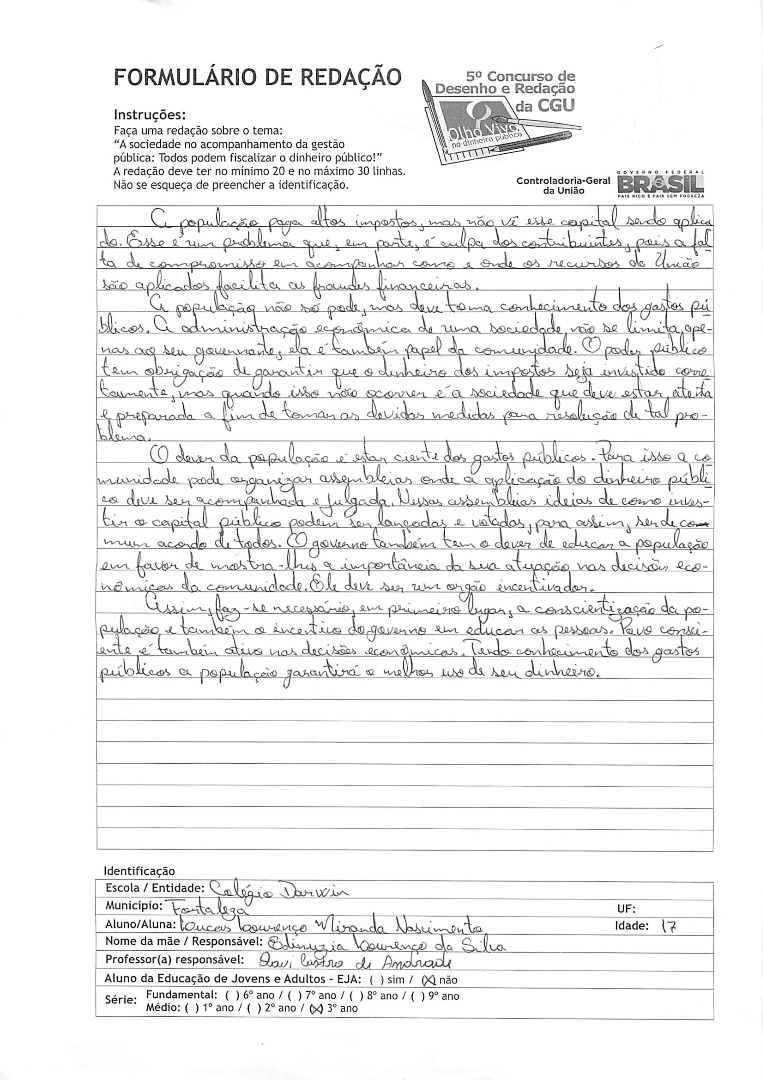 FORMULÁRIO DE REDAÇÃO
5º Concurso de
Desenho e Redação
da CGU
Olho Vivo
no dinheiro público
Instruções:
Faça uma redação sobre o tema:
“A sociedade no acompanhamento da gestão
pública: Todos podem fiscalizar o dinheiro público!”
A redação deve ter no mínimo 20 e no máximo 30 linhas.
Não se esqueça de preencher a identificação.
Controladoria-Geral
da União
GOVERNO FEDERAL
BRASIL
PAÍS RICO É PAÍS SEM POBREZA
A população paga altos impostos, mas não vê esse capital sendo aplica
do. Esse é um problema que, em parte, é culpa dos contribuintes, pois a fal
ta de compromisso em acompanhar como e onde os recursos da União
são aplicados facilita as fraudes financeiras.
A população não só pode, mas deve toma conhecimento dos gastos pú
blicos. A administração econômica de uma sociedade, não se limita, ape-
nas ao seu governante, ela é também papel da comunidade. O poder público
tem obrigação de garantir que o dinheiro dos impostos seja investido corre
tamente, mas quando isso não ocorrer é a sociedade que deve estar atenta
e preparada a fim de tomar as devidas medidas para resolução de tal pro-
blema.
O dever da população é estar ciente dos gastos públicos. Para isso a co
munidade pode organizar assembleias onde a aplicação do dinheiro públi
co deve ser acompanhada e julgada. Nessas assembleias ideias de como inves-
tir o capital público podem ser lançadas e votadas, para assim, ser de co-
mum acordo de todos. O governo também tem o dever de educar a população
em favor de mostra-lhes a importância da sua atuação nas decisões eco-
nômicas da comunidade. Ele deve ser um orgão incentivador.
Assim, faz-se necessário, em primeiro lugar, a conscientização da po-
pulação e também o incentivo do governo em educar as pessoas. Povo consci-
ente é também ativo nas decisões econômicas. Tendo conhecimento dos gastos
públicos a população garantirá o melhor uso de seu dinheiro.
Identificação
Escola / Entidade: Colégio Darwin
Município: Fortaleza UF:
Aluno/Aluna: Lucas Lourenço Miranda Nascimento Idade: 17
Nome da mãe / Responsável: Edinuzia Lourenço da Silva
Professor(a) responsável: Davi Castro de Andrade
Aluno da Educação de Jovens e Adultos - EJA: ( ) sim / (X) não
Série: Fundamental: ( ) 6º ano / ( ) 7º ano / ( ) 8º ano / ( ) 9º ano
Médio: ( ) 1º ano / ( ) 2º ano / (X) 3º ano